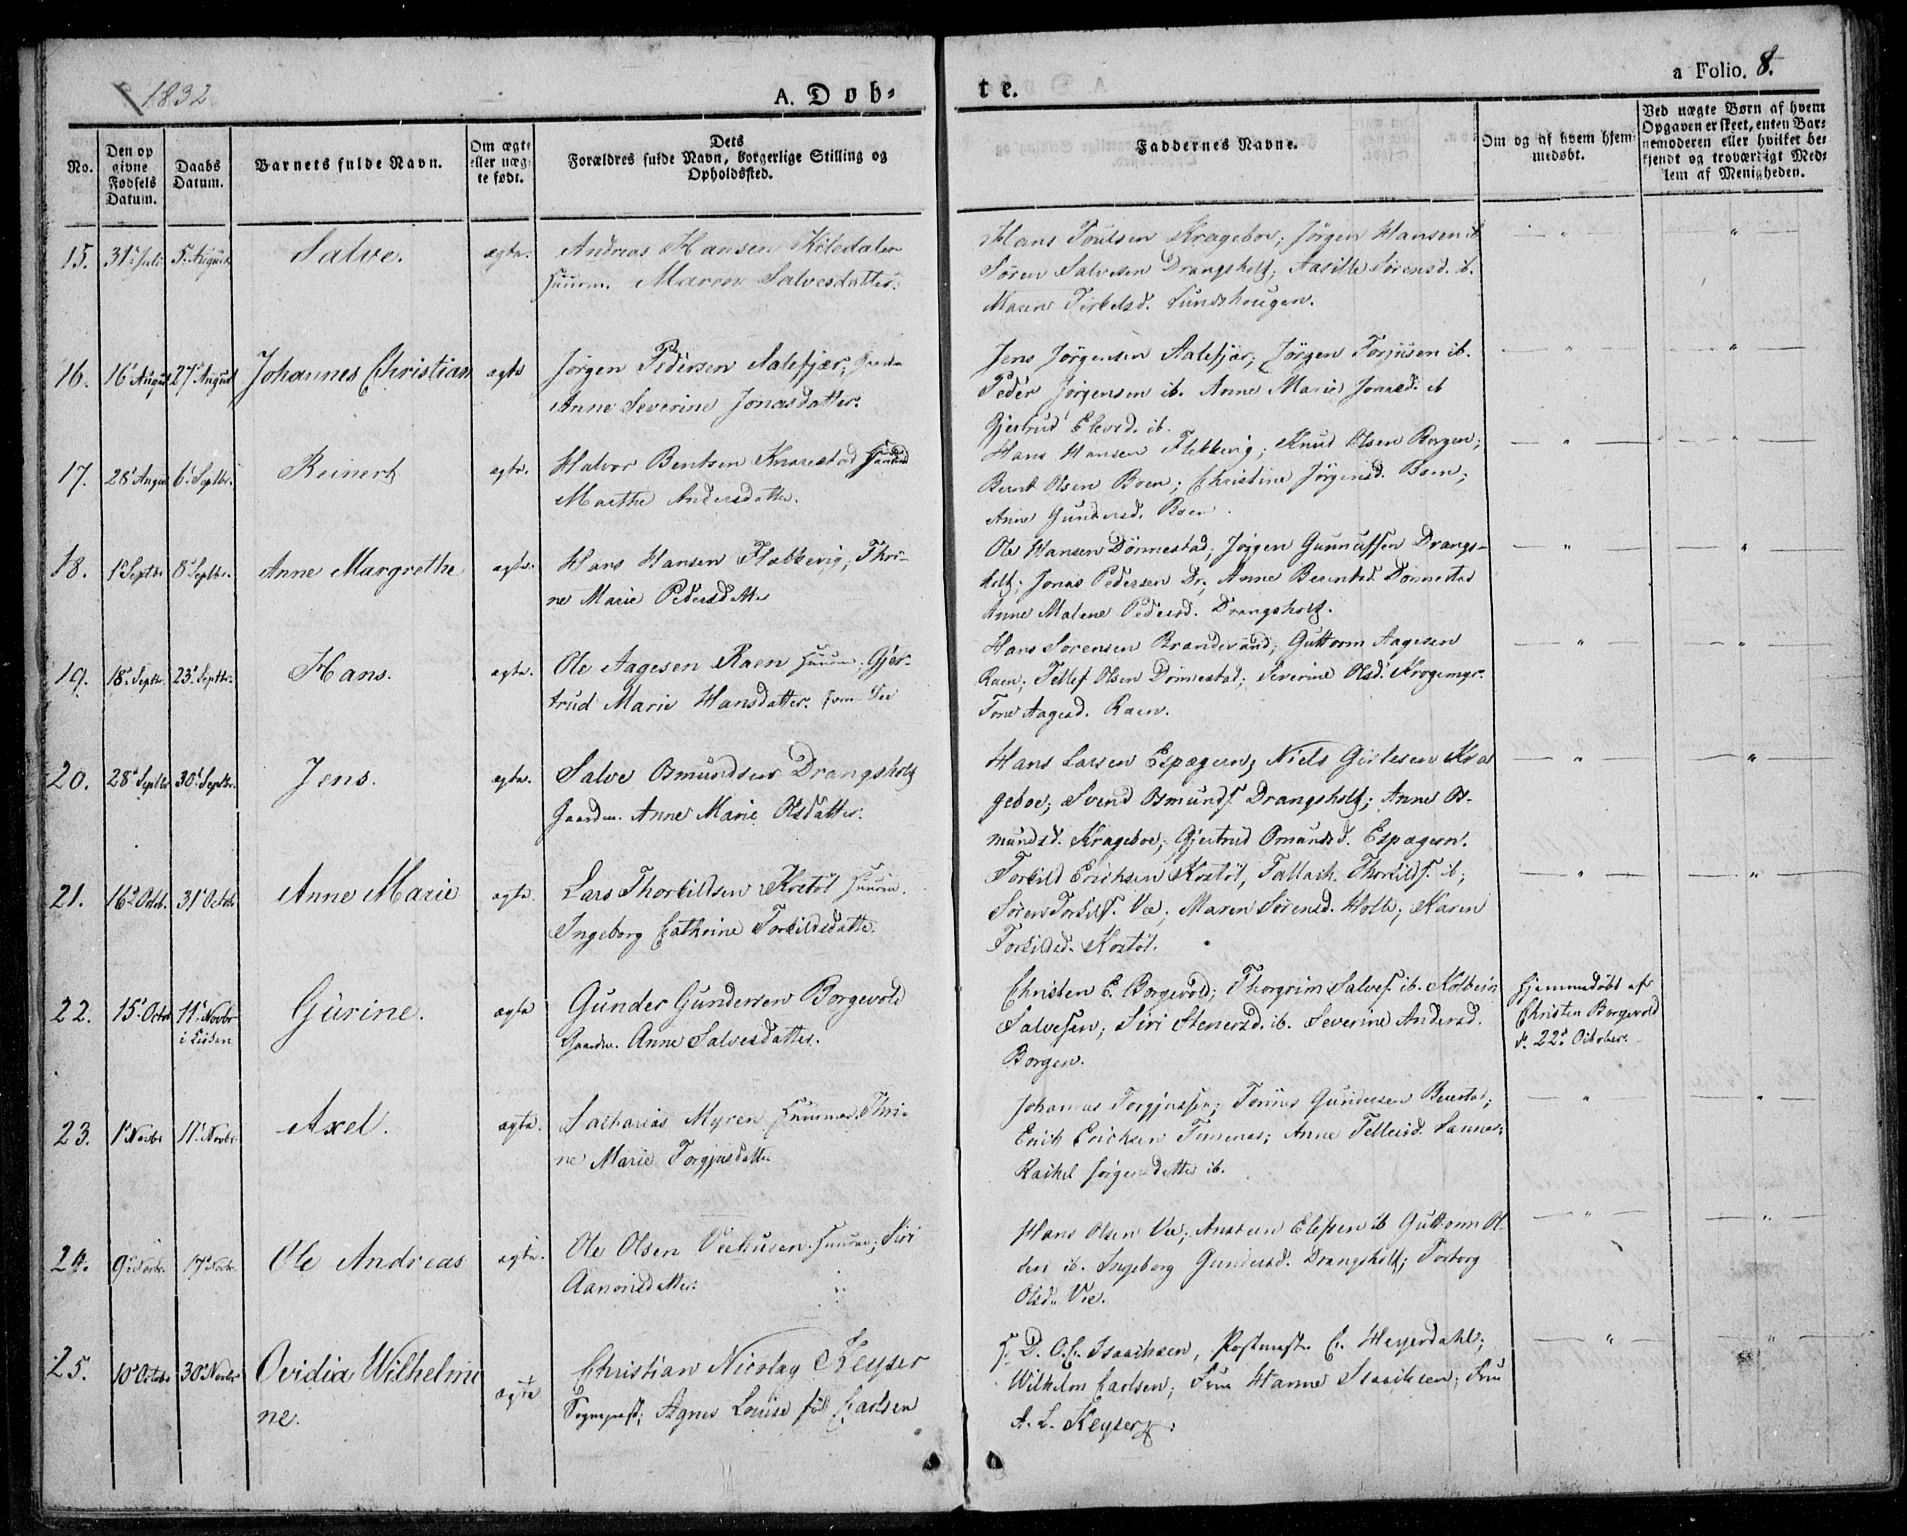 1832
A. Døb-
te.
a Folio. 8.
No.
Den op
givne
Fødsels
Datum.
Daabs
Datum.
Barnets fulde Navn.
Om ægte
eller uæg-
te født.
Dets
Forældres fulde Navn, borgerlige Stilling og
Opholdssted.
Faddernes Navne.
Om og af hvem hjem
medøbt.
Ved uægte Børn af hvem
Opgaven er skeet, enten Bar-
nemoderen eller hvilket be-
kjendt og troværdigt Med-
lem af Menigheden.
15. 31 Juli 5 August Salve. ægte. Andreas Hansen Kilsdalen
Huusm. Maren Salvesdatter.
Hans Poulsen Krageboe; Jörgen Hansen ib
Sören Salvesen Drangsholt; Aasille Sörensd. ib.
Maren Terkelsd. Lundshougen.
16. 16 August 27 August Johannes Christian ægte Jörgen Pedersen Aalefjær;
Anne Severine Jonasdatter.
Jens Jörgensen Aalefjær; Jörgen Torjusen ib.
Peder Jörgensen ib. Anne Marie Jonasd. ib
Gjertrud Elevsd. ib.
17. 28 August 6 Septbr. Reinert ægte. Halvor Bentsen Knarestad
Marthe Andersdatter.
Hans Hansen Flekkevig; Knud Olsen Borgen;
Bernt Olsen Boen; Christine Jörgensd. Boen;
Anne Gundersd. Boen.
18. 1 Septbr 8 Septbr. Anne Margrethe ægte. Hans Hansen Flekkevig; Thri-
ne Marie Pedersdatter
Ole Hansen Dönnestad; Jörgen Gunnufsen Drangs-
holt; Jonas Pedersen Do; Anne Berentsd. Dönnestad
Anne Malene Pedersd. Drangsholt.
19. 18 Septbr. 23 Septbr. Hans. ægte. Ole Aagesen Raen Huusm; Gjer-
trud Marie Hansdatter.
Hans Sörensen Brandevand; Guttorm Aagesen
Raen; Tellef Olsen Dönnestad; Severine Olsd. Krogemyr.
Tone Aagesd. Raen.
20. 28 Septbr 30 Septbr. Jens. ægte. Salve Osmundsen Drangsholt
Gaardm. Anne Marie Olsdatter.
Hans Larsen Espegren; Niels Girlesen Kra
geboe; Svend Osmunds. Drangsholt; Anne Os-
mundsd. Krageboe; Gjertrud Omundsd. Espegren.
21. 16 Octob. 31 Octob Anne Marie ægte. Lars Thorkildsen Kostöl Huusm.
Ingeborg Cathrine Torkildsdatter.
Torkild Erichsen Kostöl, Tallach Thorkilds. ib;
Sören Torkilds. Vee; Maren Sörensd. Holte; Karen
Torkildsd. Kostöl.
22. 15 Octob 11 Novbr
i Kirken Gurine. ægte Gunder Gundersen Borgevold
Gaardm. Anne Salvesdatter.
Christen E. Borgevold; Thorgrim Salves. ib. Kolbein
Salvesen; Siri Stenersd. ib. Severine Andersd.
Borgen.
Hjemmedöbt af
Christen Borgevold
d. 22 October.
23. 1 Novbr 11 Novbr Axel. ægte. Zacharias Myren Huusmd. Thri-
ne Marie Torgjusdatter
Johannes Torgjussen; Tönnes Gundersen Beiestad;
Erich Erichsen Timenes; Anne Tellefsd. Sannes;
Rachel Jörgensdatter ib.
24. 9 Novbr. 17 Novbr. Ole Andreas ægte. Ole Olsen Veehusen Huusm; Siri
Aanonsdatter.
Hans Olsen Vee; Ansteen Elefsen ib Guttorm Ol-
sen ib. Ingeborg Gundersd. Drangsholt; Torborg
Olsd. Vee.
25. 10 Octob 30 Novbr Ovidia Wilhelmi
ne. ægte Christian Nicolay Keyser
Sognepræst; Agnes Louise föd Carlsen
H. D. O. C. Isaachsen, Postmest. C. Heyerdahl;
Wilhelm Carlsen; Frue Hanne Isaachsen; Frue
A. L. Keyser